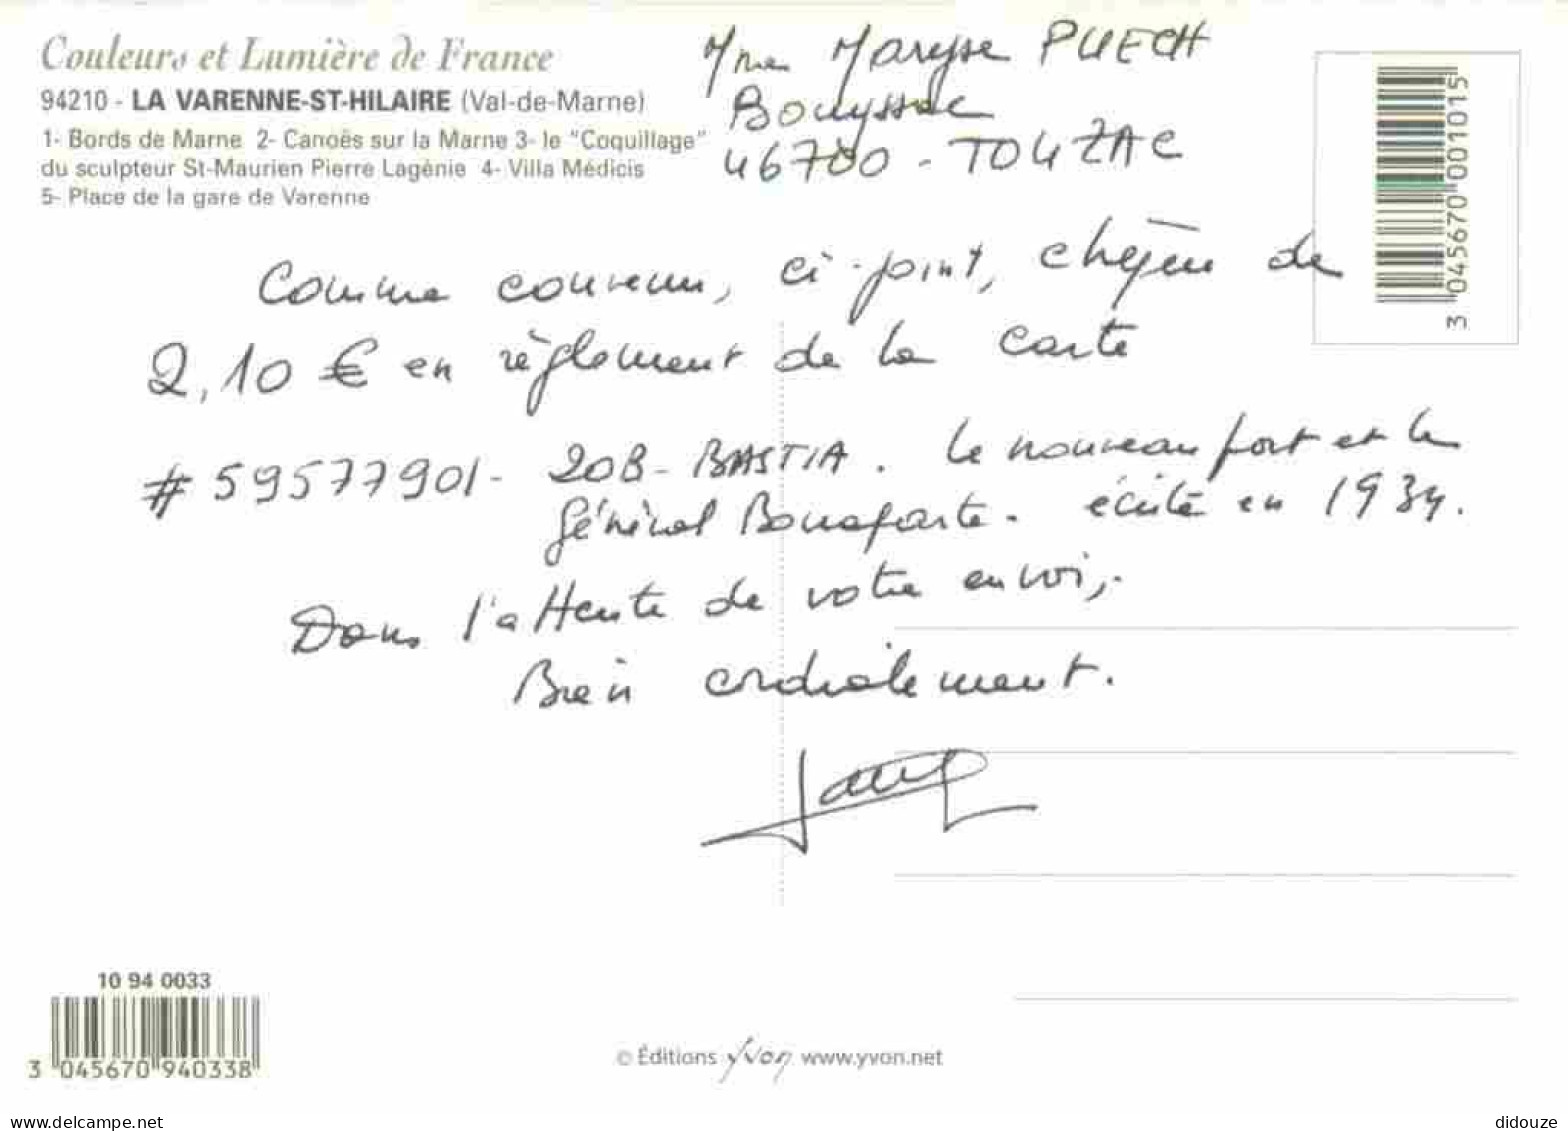 Couleurs et Lumière de France
94210 - LA VARENNE-ST-HILAIRE (Val-de-Marne)
1- Bords de Marne 2- Canoës sur la Marne 3- le "Coquillage"
du sculpteur St-Maurien Pierre Lagénie 4- Villa Médicis
5- Place de la gare de Varenne
Mme Maryse PUECH
Bouyssac
46700 - TOUZAC
3 045670 001015
Comme convenu, ci-joint, chèque de
2,10 € en règlement de la carte
# 59577901- 20B - BASTIA. Le nouveau port et le
Général Bonaparte. écrite en 1934.
Dans l'attente de votre envoi,.
Bien cordialement.
10 94 0033
3 045670 940338
© Éditions Yvon www.yvon.net
www.delcampe.net
didouze